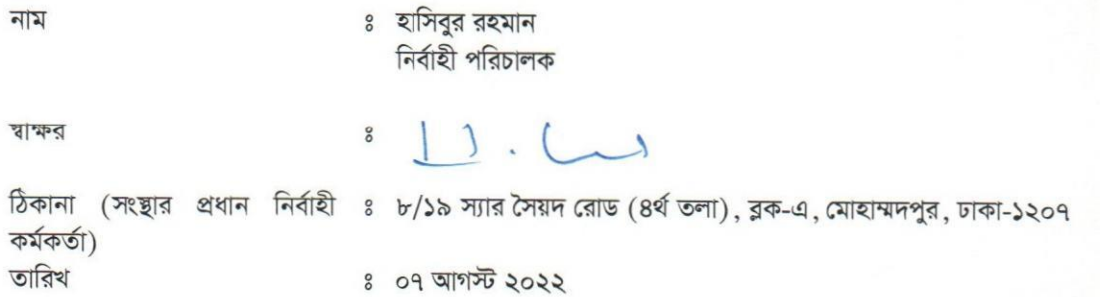 নাম ঃ হাসিবুর রহমান
নির্বাহী পরিচালক
স্বাক্ষর ঃ
ঠিকানা (সংস্থার প্রধান নির্বাহী ঃ ৮/১৯ স্যার সৈয়দ রোড (৪র্থ তলা), ব্লক-এ, মোহাম্মদপুর, ঢাকা-১২০৭
কর্মকর্তা)
তারিখ ঃ ০৭ আগস্ট ২০২২